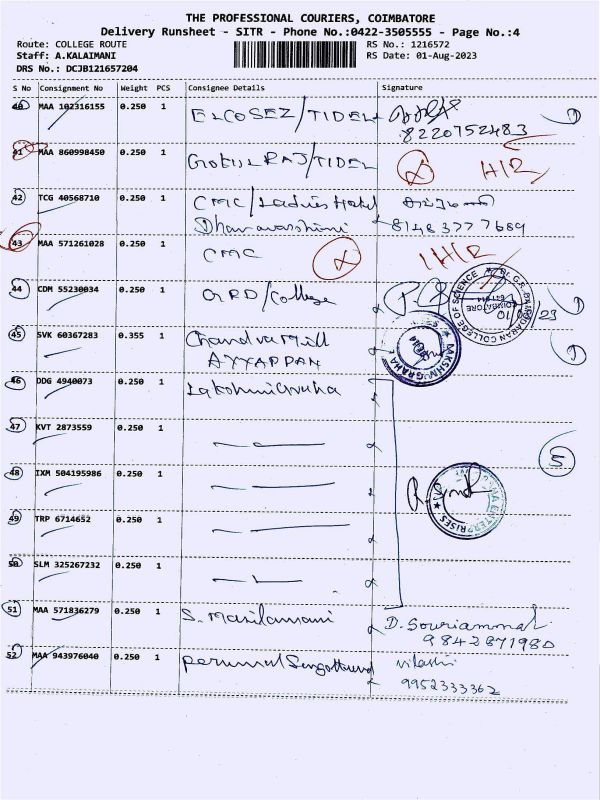 THE PROFESSIONAL COURIERS, COIMBATORE
Delivery Runsheet - SITR - Phone No.:0422-3505555 - Page No.:4
Route: COLLEGE ROUTE
RS No.: 1216572
Staff: A.KALAIMANI
RS Date: 01-Aug-2023
DRS No.: DCJB121657204
S No Consignment No Weight PCS Consignee Details Signature
40 MAA 102316155 0.250 1 ELCOSEZ/TIDEL
8220752483
41 MAA 860998450 0.250 1 Gokul RAJ/TIDEL
42 TCG 40568710 0.250 1 CMC/Ladies Hostel
Dhanavarshini 81483777689
43 MAA 571261028 0.250 1 CMC
44 CDM 55230034 0.250 1 GRD/College
45 SVK 60367283 0.355 1 Chandra Mill
AYYAPPAN
46 DDG 4940073 0.250 1 Lakshmigruha
47 KVT 2873559 0.250 1
48 IXM 504195986 0.250 1
5
49 TRP 6714652 0.250 1
50 SLM 325267232 0.250 1
51 MAA 571836279 0.250 1 S. Masilamani D. Souriammal
9842871980
52 MAA 943976040 0.250 1 Perumal
9952333362